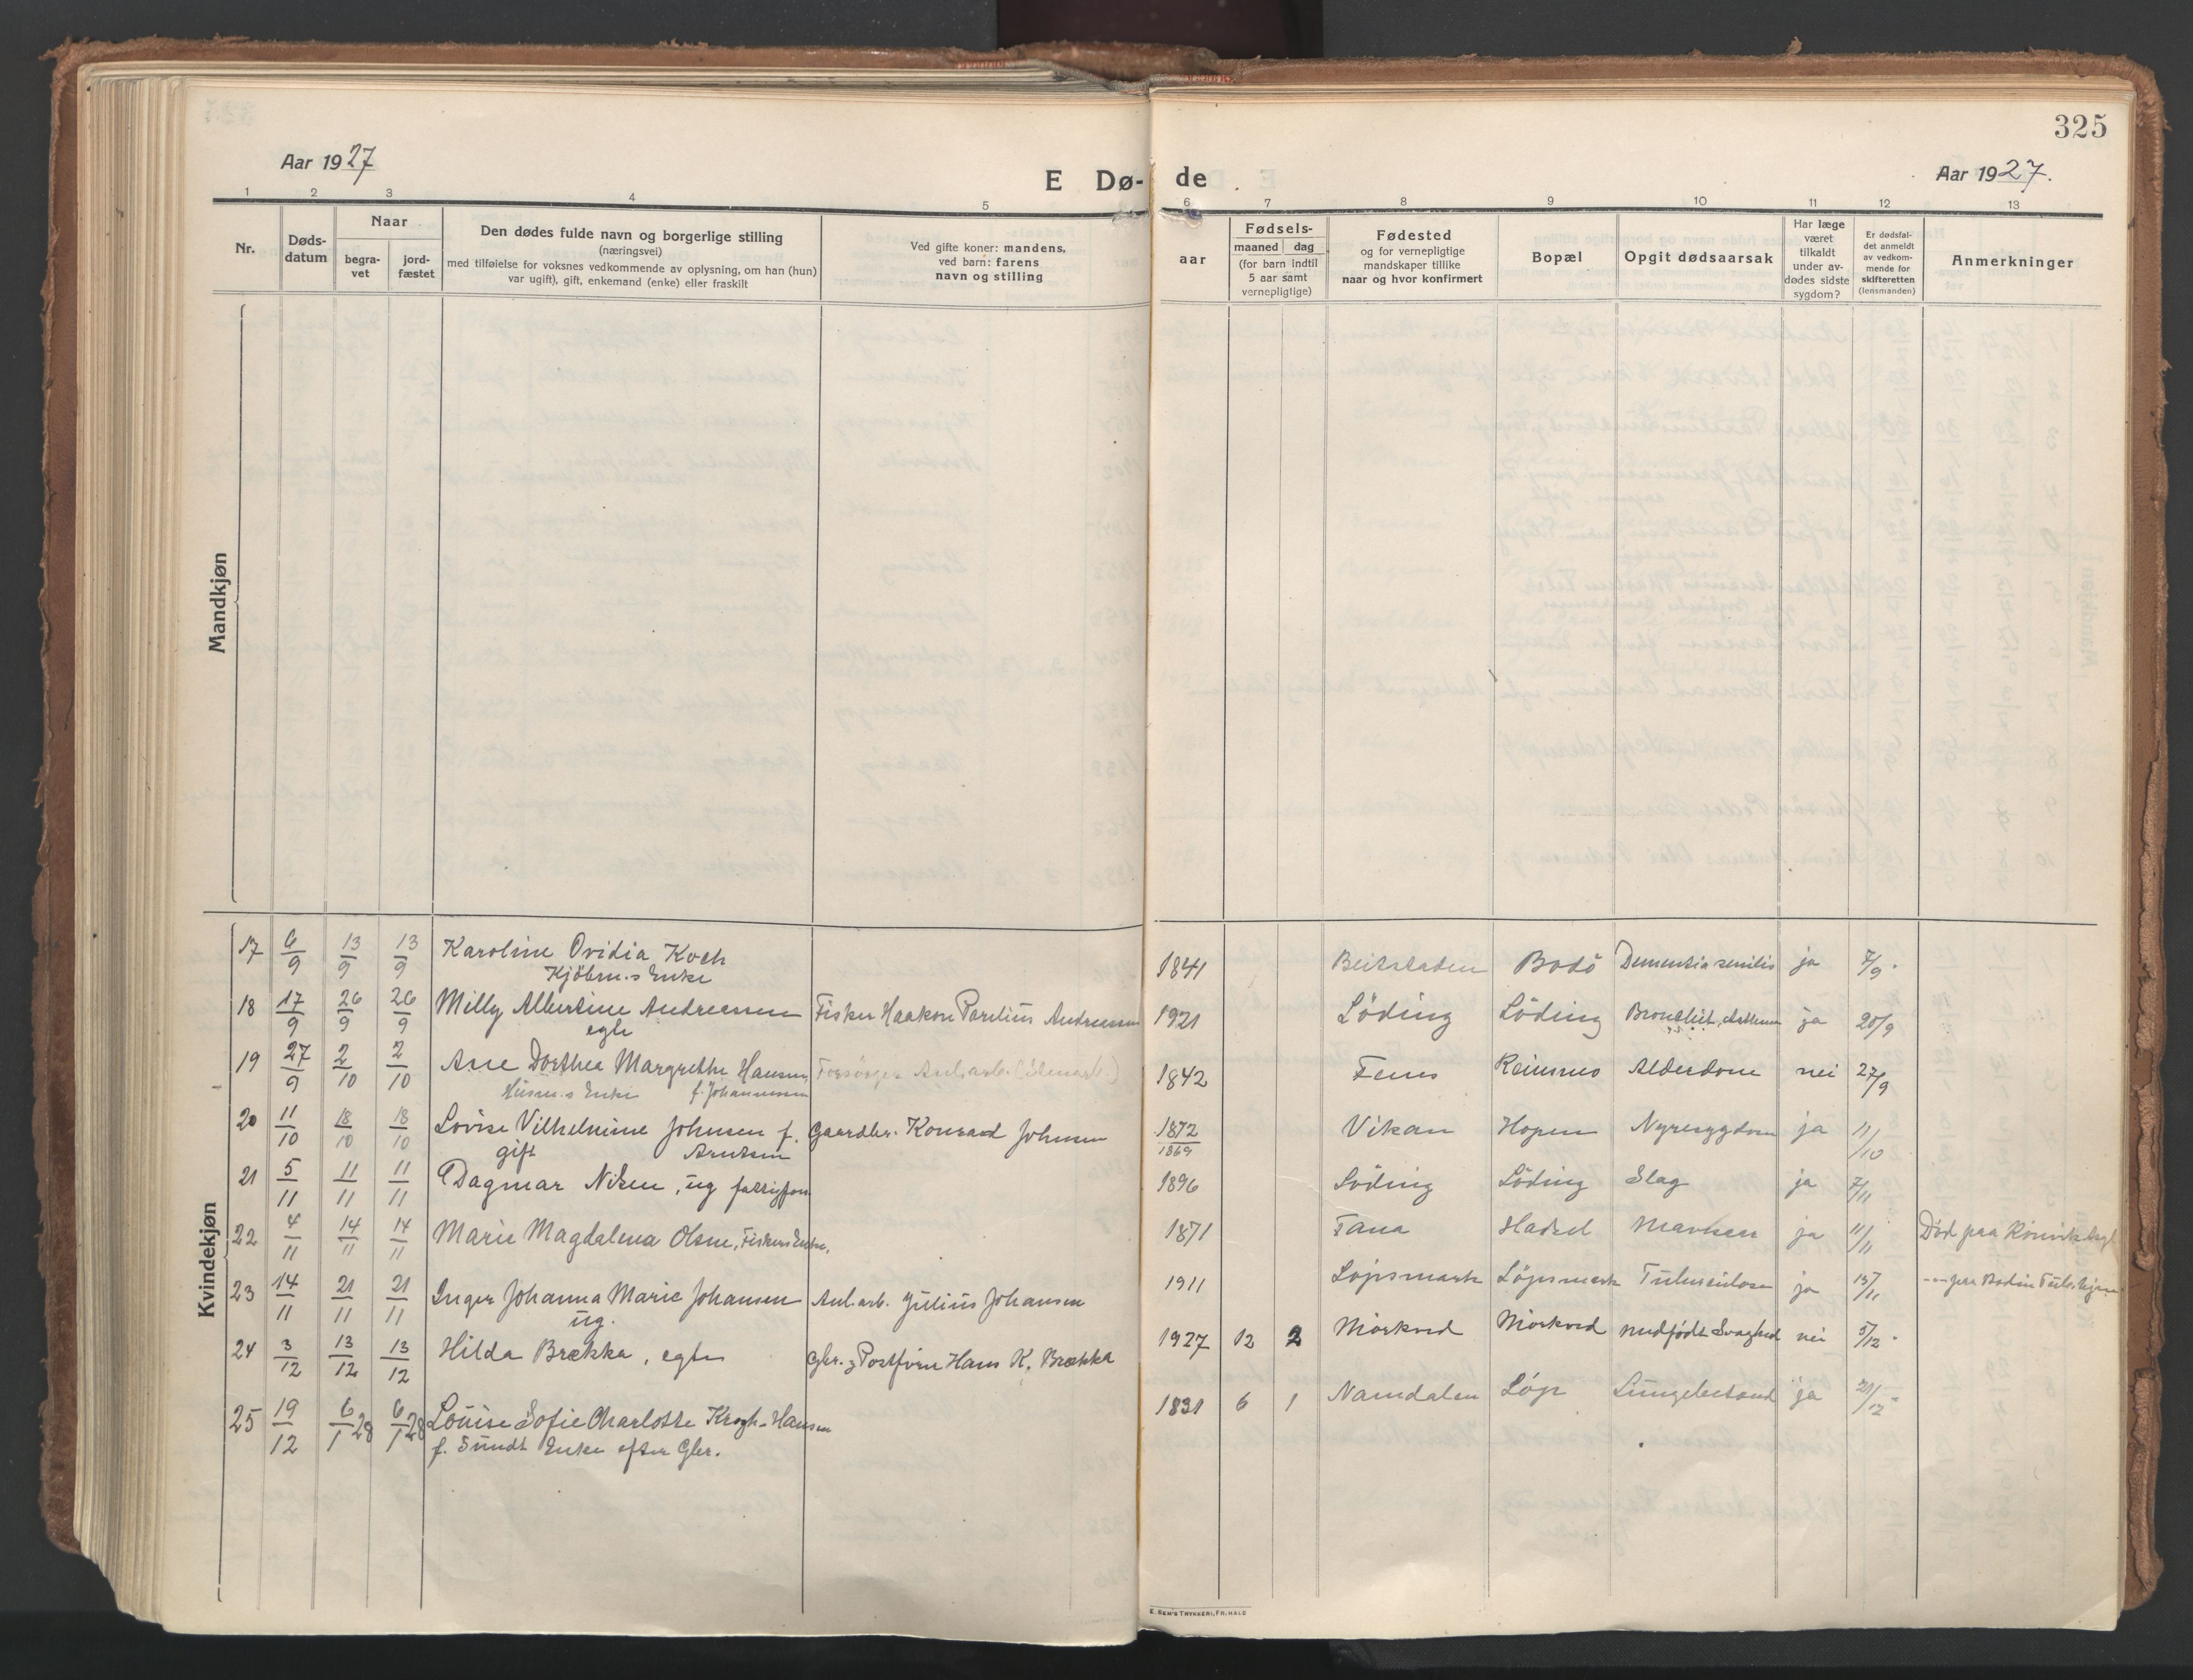 325
Aar 1927
E Dø- de
Aar 1927.
1 2 3 4 5 6 7 8 9 10 11 12 13
Nr.
Døds-
datum
Naar
begra-
vet
jord-
fæstet
Den dødes fulde navn og borgerlige stilling
(næringsvei)
med tilføielse for voksnes vedkommende av oplysning, om han (hun)
var ugift), gift, enkemand (enke) eller fraskilt
Ved gifte koner: mandens,
ved barn: farens
navn og stilling
Fødsels-
aar
maaned dag
(for barn indtil
5 aar samt
vernepligtige)
Fødested
og for vernepligtige
mandskaper tillike
naar og hvor konfirmert
Bopæl
Opgit dødsaarsak
Har læge
været
tilkaldt
under av-
dødes sidste
sygdom?
Er dødsfal-
det anmeldt
av vedkom-
mende for
skifteretten
(lensmanden)
Anmerkninger
Mandkjøn
Kvindekjøn
17 6/9 13/9 13/9 Karoline Ovidia Koch 1841 Beitstaden Bodö Dementia senilis ja 7/9.
Kjöbm.s Enke
18 17/9 26/9 26/9 Milly Albertine Andreassen Fisker Haakon Parelius Andreassen 1921 Löding Löding ja 20/9
egte
19 27/9 2/10 2/10 Ane Dorthea Margrethe Hansen Forsörges 1842 Reinsmo Alderdom nei 27/9
Husm.s Enke f. Johannessen
20 11/10 18/10 18/10 Lovise Vilhelmine Johnsen f. Gaardbr. Konrad Johnsen 1872 Vikan Hopen Nyresygdom ja 11/10
gift Arntsen 1869
21 5/11 11/11 11/11 Dagmar Nilsen, ug 1896 Löding Löding Slag ja 7/11
22 4/11 14/11 14/11 Marie Magdalena Olsen, Fiskers Enke, 1871 Tana Hadsel ja 11/11 Död paa
23 14/11 21/11 21/11 Inger Johanna Marie Johansen Anl.arb. Julius Johansen 1911 Löpsmark Löpsmark Tuberkulose ja 15/11
ug.
24 3/12 13/12 13/12 Hilda Brekka, egte Gbr. & Postförer Hans K. Brækka 1927 12 2 Mörkved Mörkved medfödt Svaghed nei 5/12.
25 19/12 6/1 28 6/1 28 Louise Sofie Charlotte Krogh-Hansen 1831 6 1 Namdalen Löp Lungebetænd ja 21/12
f. Sundt Enke efter Gbr.
E. SEM'S TRYKKERI, FR.HALD